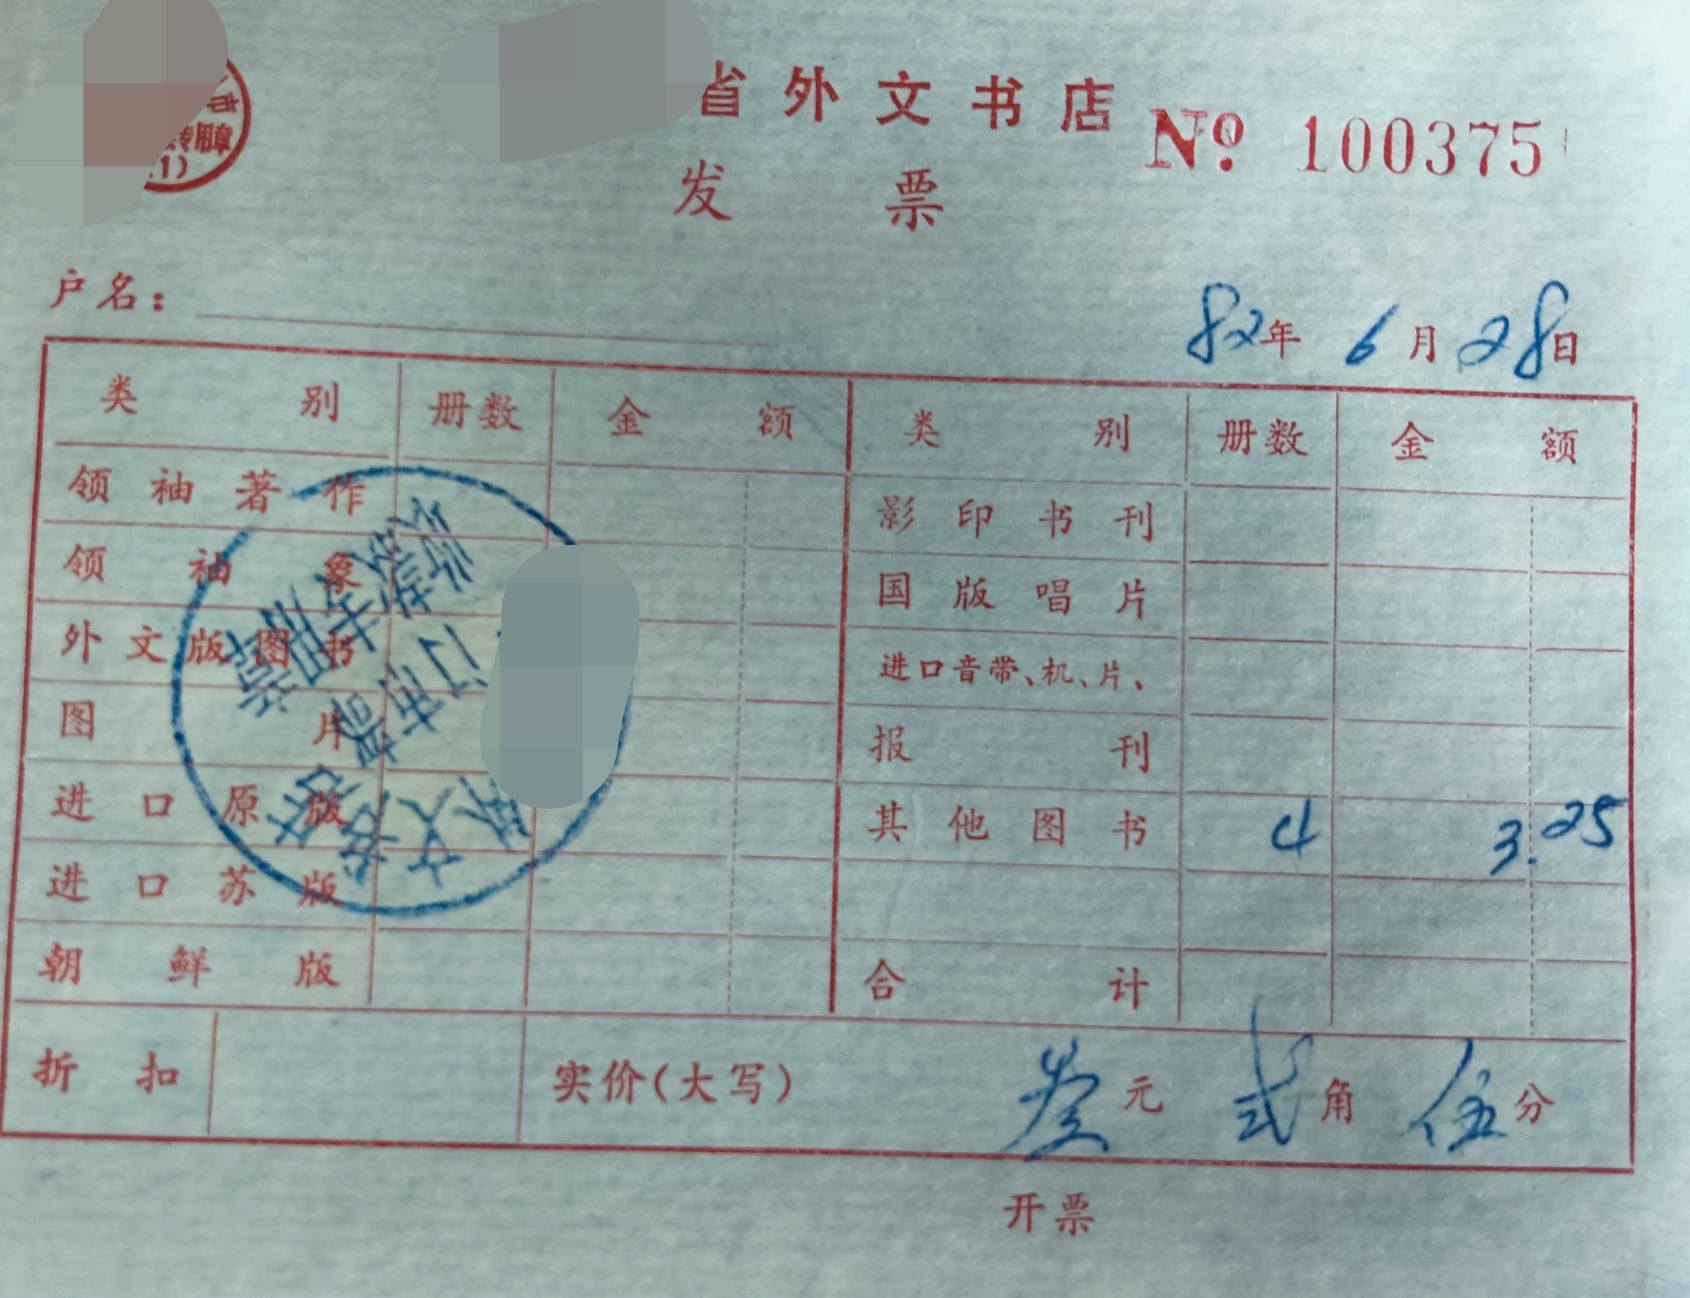 省外文书店
№ 100375
发票
市
专用章
1)
户名：
82年 6月 28日
类别 册数 金额 类别 册数 金额
领袖著作 影印书刊
领袖象 国版唱片
外文版图书 进口音带、机、片、
图片 报刊
进口原版 其他图书 4 3.25
进口苏版
朝鲜版 合计
折扣 实价(大写) 叁元 贰角 伍分
开票
外文书店
门市部